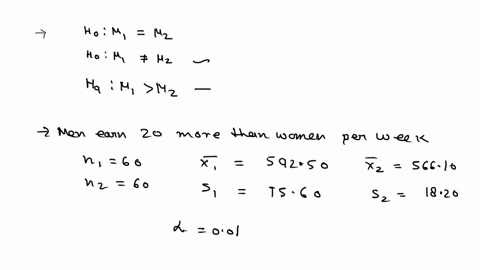 → H₀ : M₁ = M₂
H₀ : M₁ ≠ M₂
Hq : M₁ > M₂ —
→ Men earn 20 more than women per week
n₁ = 60 x̄₁ = 592.50 x̄₂ = 566.10
n₂ = 60 S₁ = 75.60 S₂ = 18.20
α = 0.01